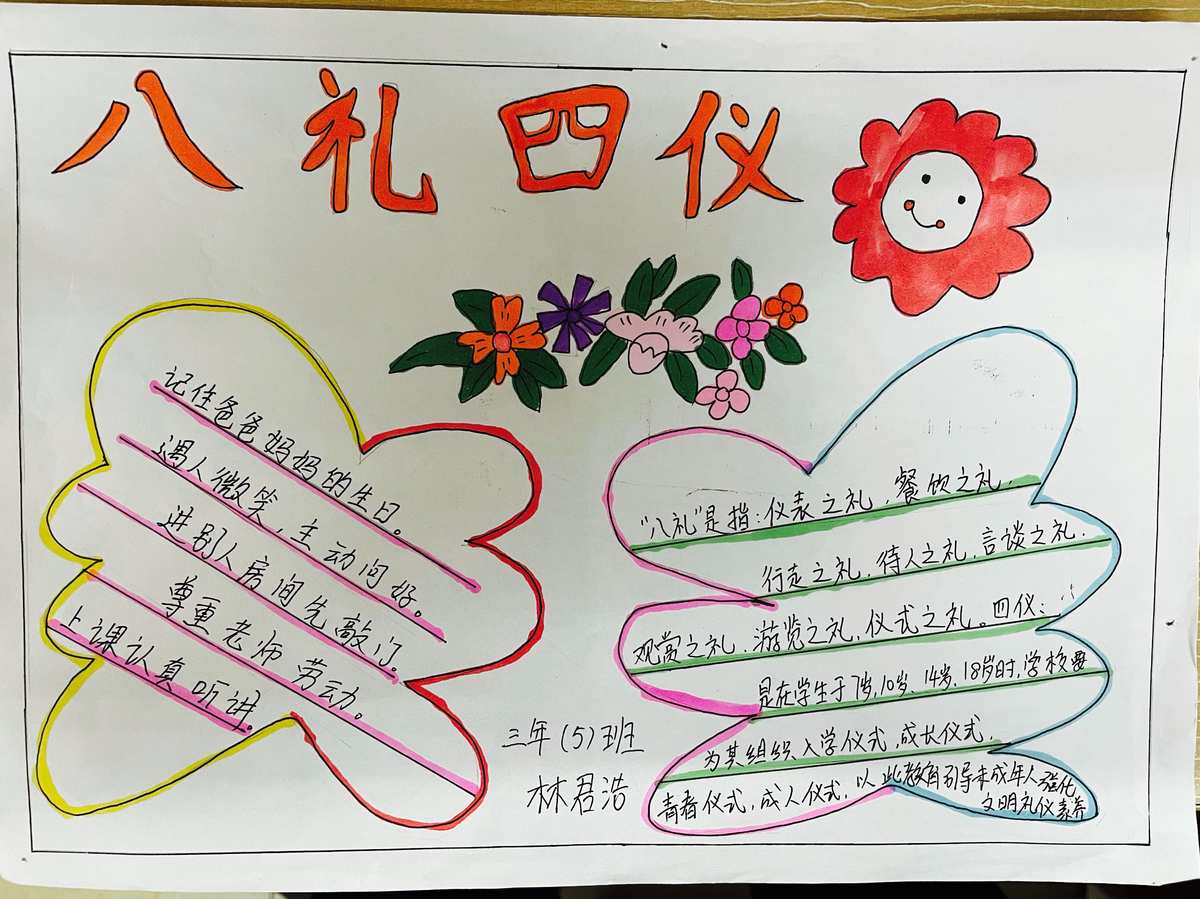 八礼四仪
记住爸爸妈妈的生日。
遇人微笑，主动问好。
进别人房间先敲门。
尊重老师 劳动。
上课认真听讲。
"八礼"是指：仪表之礼，餐饮之礼．
行走之礼，待人之礼，言谈之礼．
观赏之礼，游览之礼，仪式之礼。四仪：
是在学生于7岁，10岁、14岁、18岁时，学校要
为其组织入学仪式，成长仪式．
青春仪式，成人仪式，以此教育引导未成年人强化
文明礼仪素养
三年(5)班
林君浩